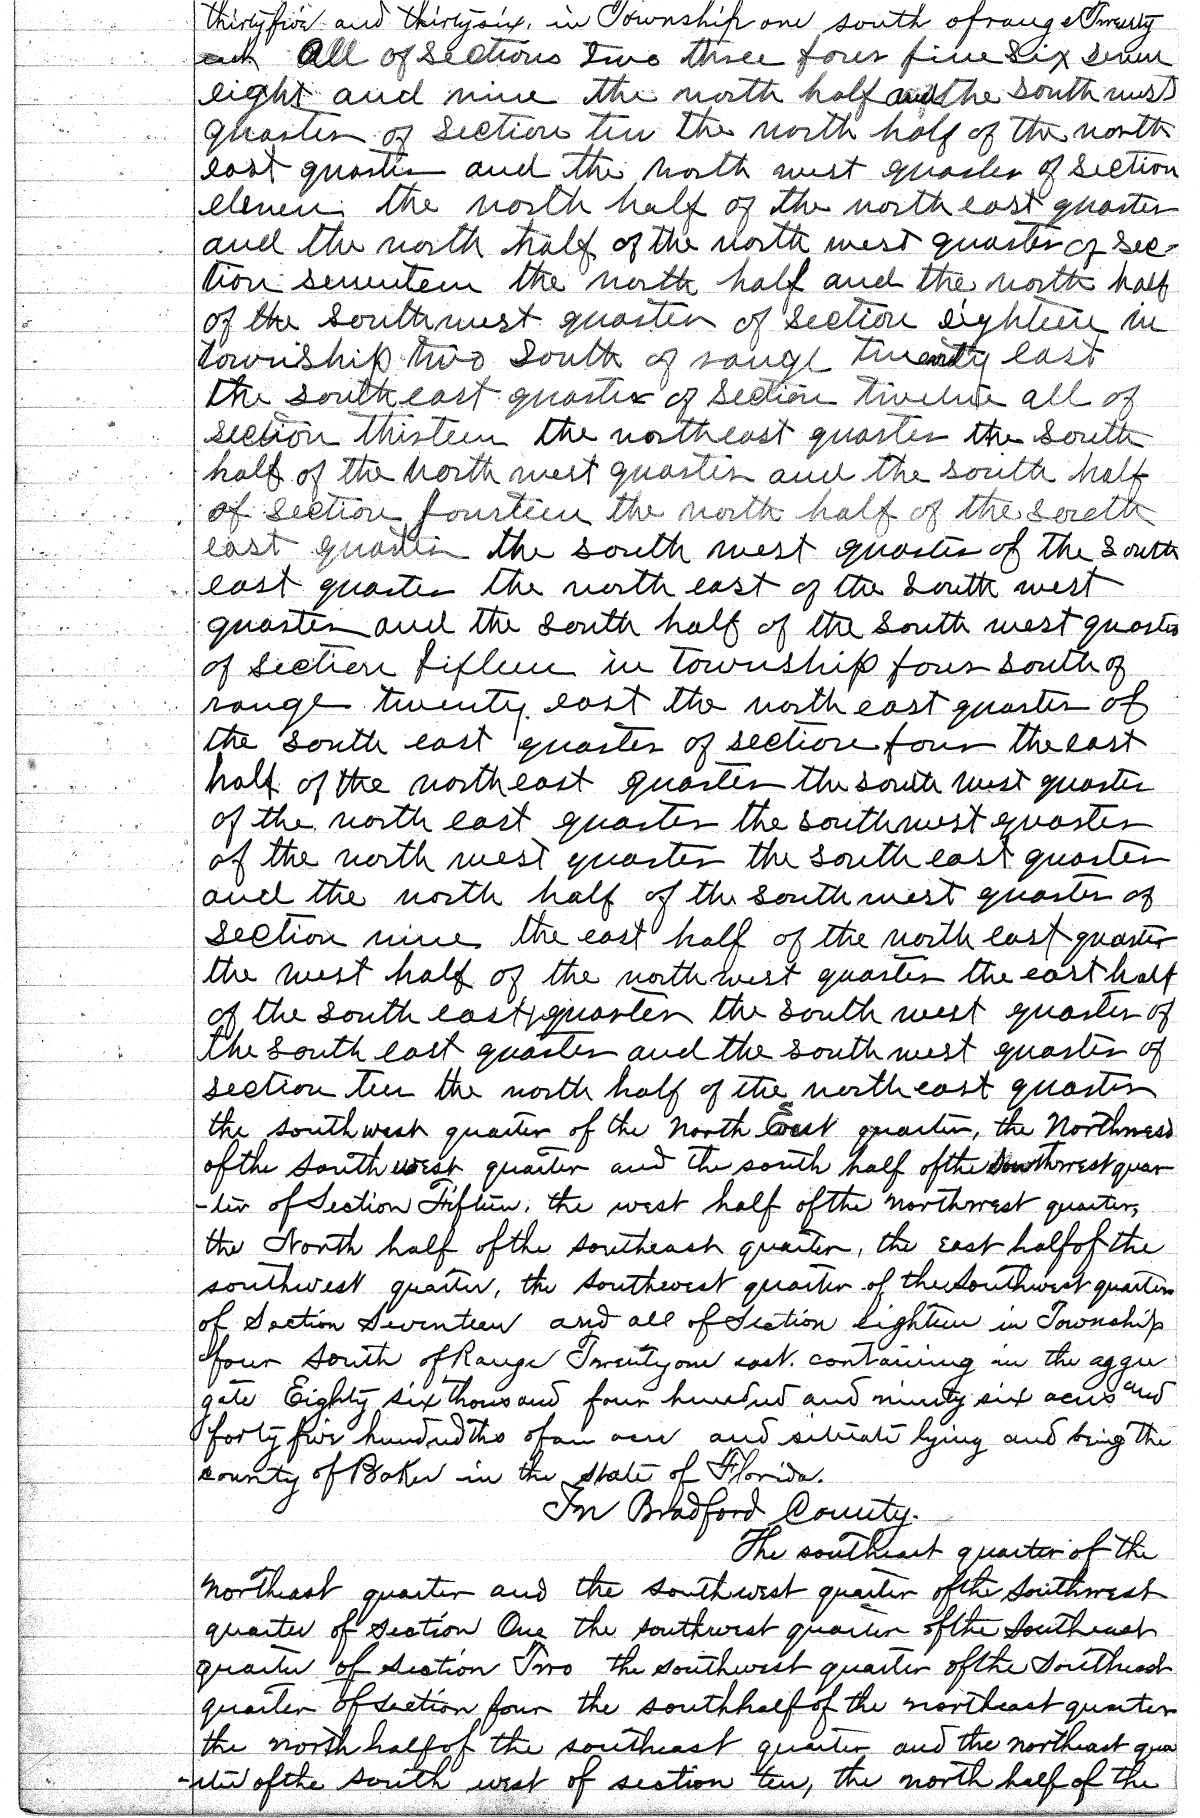 thirty five and thirty six, in Township one south of range Twenty
east All of sections two three four five six seven
eight and nine the north half and the south west
quarter of section ten the north half of the north
east quarter and the north west quarter of section
eleven, the north half of the north east quarter
and the north half of the north west quarter of sec-
tion seventeen the north half and the north half
of the south west quarter of section eighteen in
township two south of range twenty east
the south east quarter of section twelve all of
section thirteen the northeast quarter the south
half of the north west quarter and the south half
of section fourteen the north half of the south
east quarter the south west quarter of the south
east quarter the north east of the south west
quarter and the south half of the south west quarter
of section fifteen in township four south of
range twenty east the north east quarter of
the south east quarter of section four the east
half of the northeast quarter the south west quarter
of the north east quarter the southwest quarter
of the north west quarter the south east quarter
and the north half of the south west quarter of
section nine the east half of the north east quarter
the west half of the northwest quarter the east half
of the south east quarter the south west quarter of
the south east quarter and the south west quarter of
section ten the north half of the northeast quarter
the southwest quarter of the North East quarter, the Northwest
of the southwest quarter and the south half of the southwest quar
-ter of Section Fifteen, the west half of the Northwest quarter,
the North half of the southeast quarter, the East half of the
southwest quarter, the southwest quarter of the Southwest quarter
of Section Seventeen and all of Section Eighteen in Township
four South of Range Twenty one east. containing in the aggre
gate Eighty six thousand four hundred and ninety six acres and
forty five hundredths of an acre and situate lying and being the
county of Baker in the state of Florida.
In Bradford County.
The southeast quarter of the
Northeast quarter and the southwest quarter of the Southwest
quarter of section One the southwest quarter of the Southeast
quarter of section Two the southwest quarter of the Southeast
quarter of section four the south half of the northeast quarter
the north half of the southeast quarter and the northeast qua
-rter of the south west of section ten, the north half of the